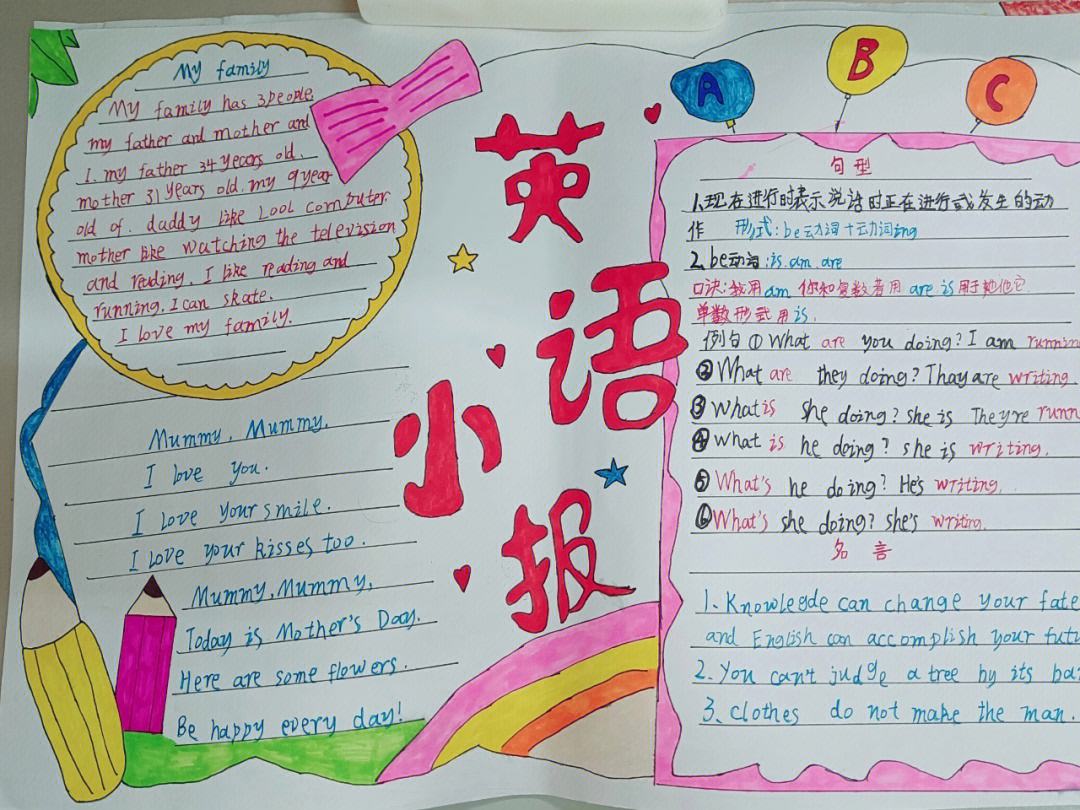 My family
My family has 3 people,
my father and mother and
I. my father 34 years old.
mother 31 years old. my 9 year
old of. daddy like look computer.
mother like watching the television
and reading. I like reading and
running. I can skate.
I love my family.
Mummy, Mummy.
I love you.
I love your smile.
I love your kisses, too.
Mummy, Mummy,
Today is Mother's Day.
Here are some flowers.
Be happy every day!
英
语
小
报
A
B
C
句型
1.现在进行时表示说话时正在进行或发生的动
作 形式:be动词+动词ing
2.be动词:is.am.are
口诀:我用am 你和复数者用are is用于她他它
单数形式用is.
例句①What are you doing? I am runnin
②What are they doing? Thay are writing.
③What is she doing? she is They're runn
④what is he doing? she is writing.
⑤What's he doing? He's writing.
⑥What's she doing? she's writing.
名言
1. Knowlegde can change your fate
and English can accomplish your futu
2. You can't judge a tree by its ba
3. Clothes do not make the man.